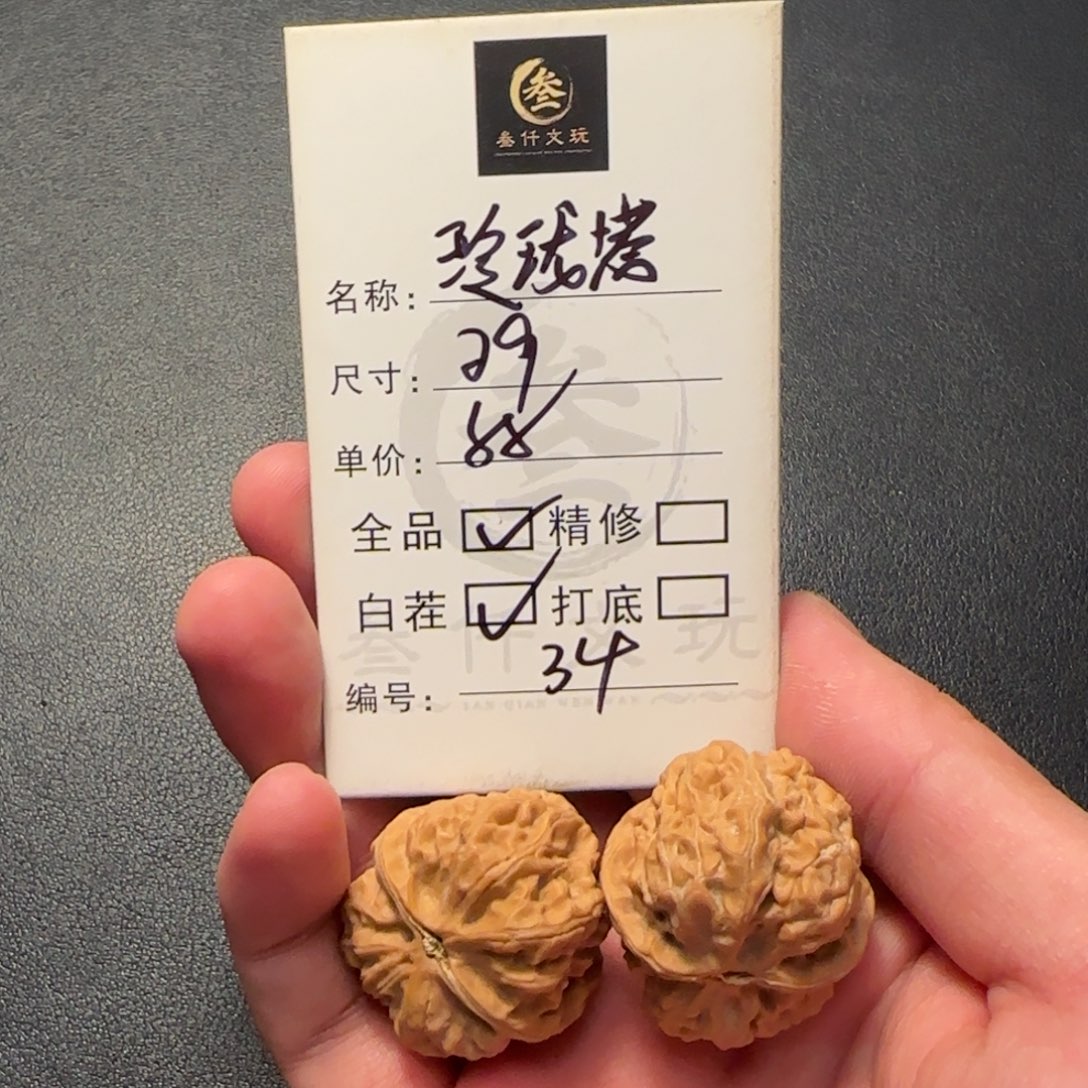 叁
叁仟文玩
名称: 玲珑塔
尺寸: 29
单价: 88
全品 ✓ 精修
白茬 ✓ 打底
叁仟文玩
编号: 34
SAN QIAN WEN WAN